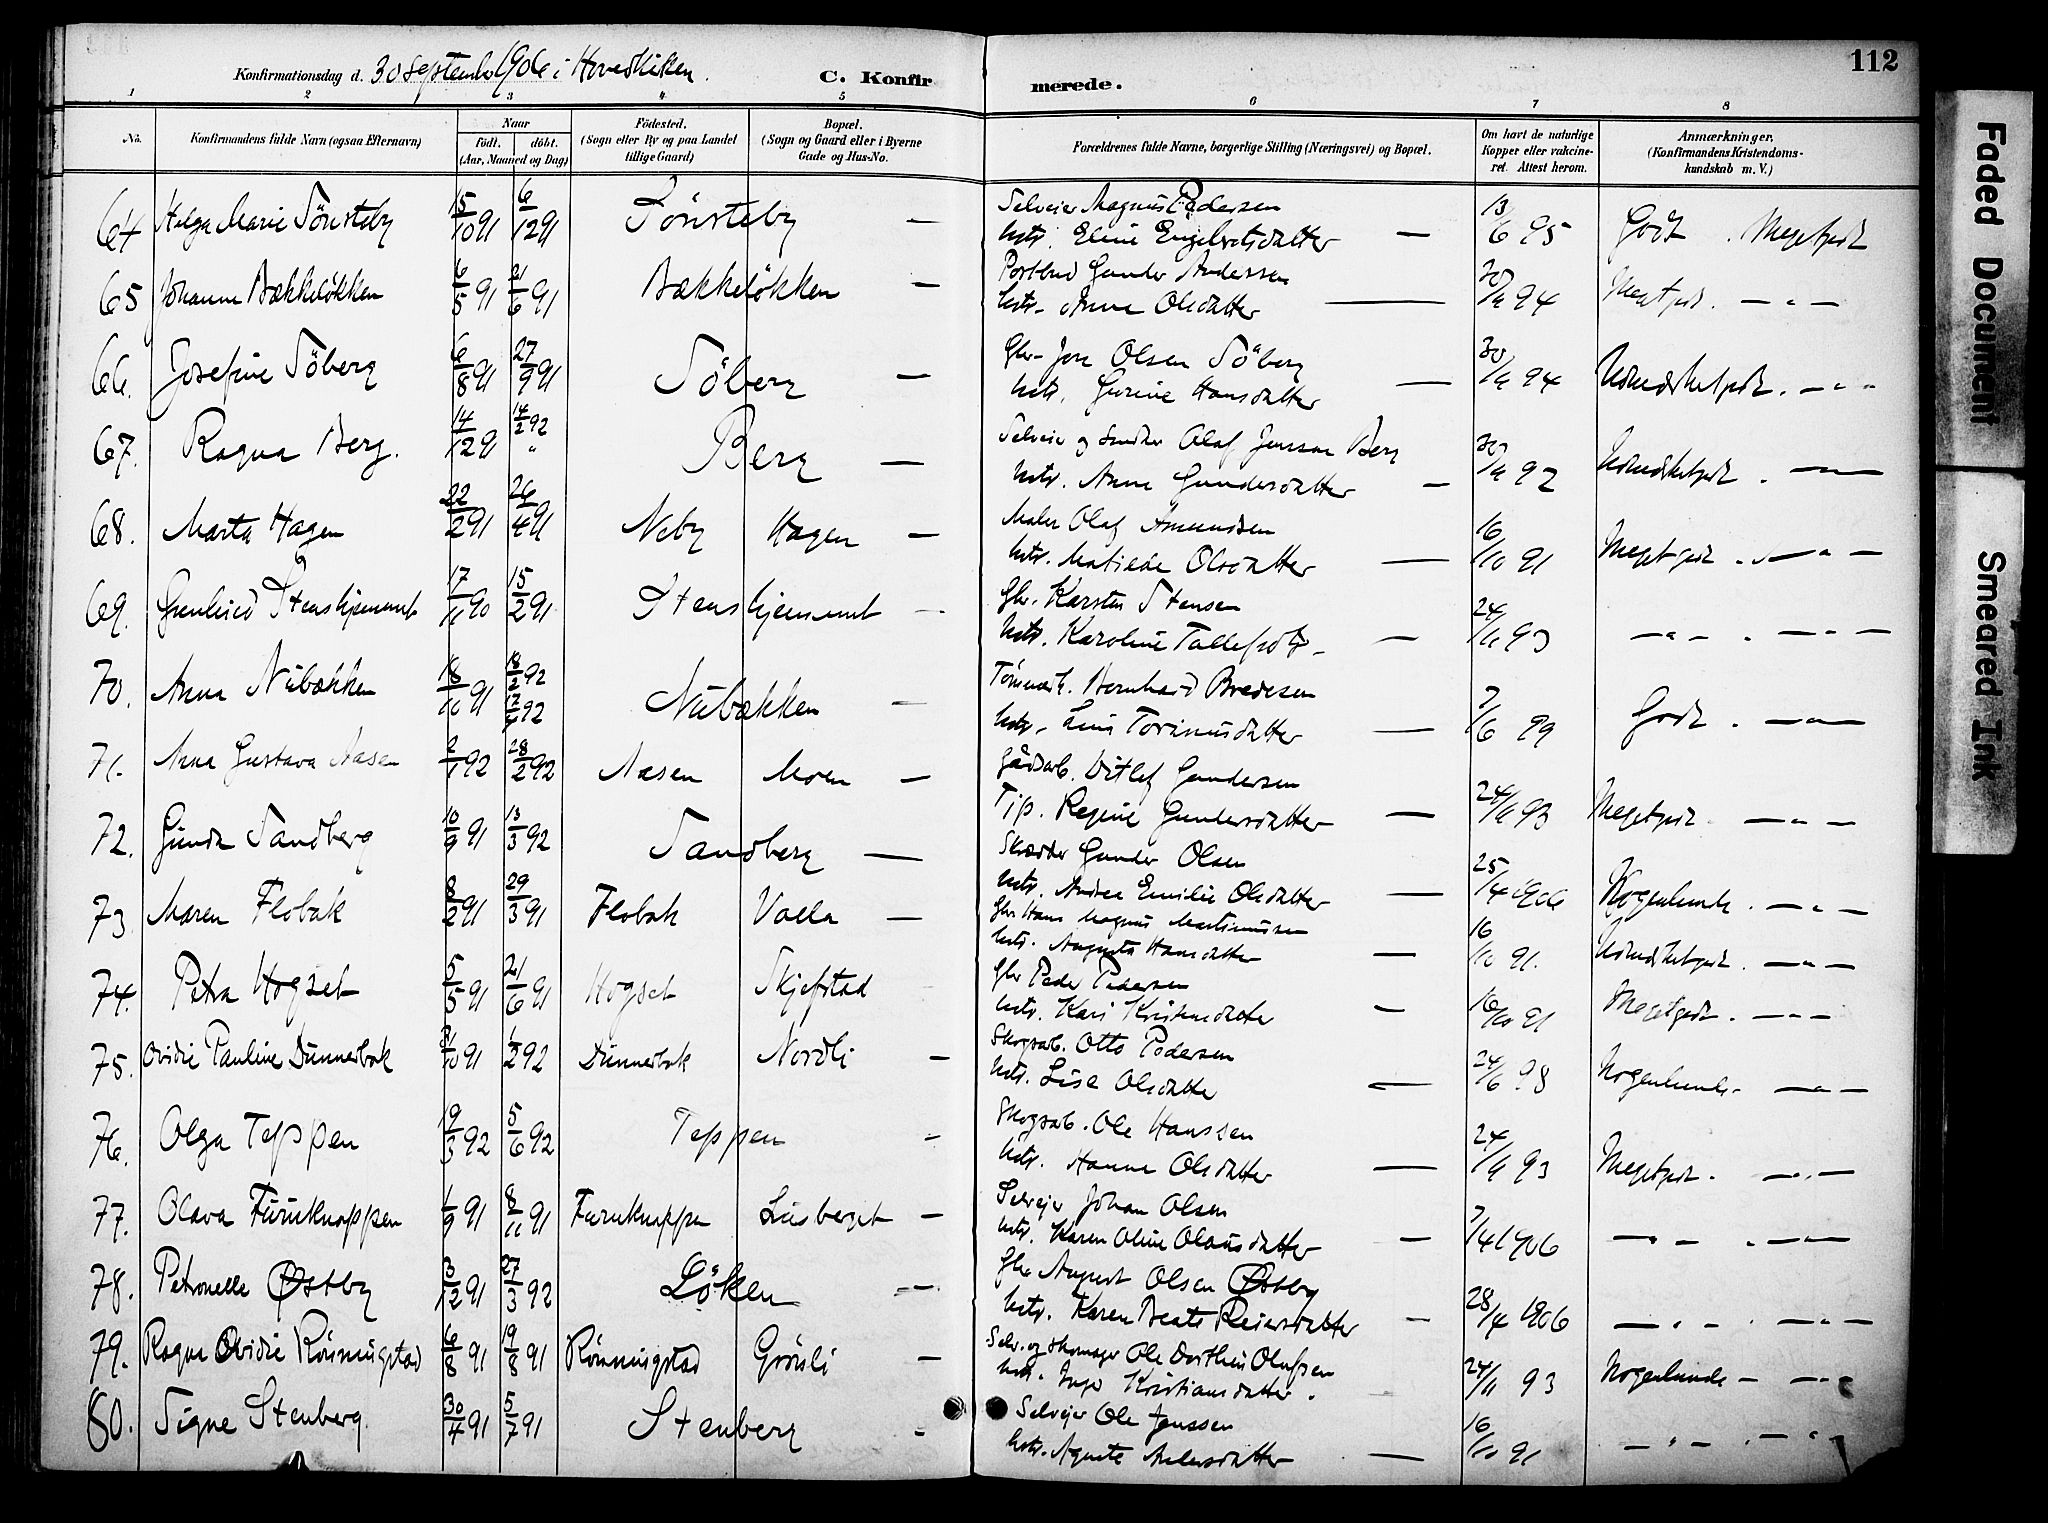 112
Konfirmationsdag d. 30 September 1906 i Hovedkirken.
C. Konfirmerede.
1 2 3 4 5 6 7 8
No.
Konfirmandens fulde Navn (ogsaa Efternavn)
Naar
født. døbt.
(Aar, Maaned og Dag)
Fødested.
(Sogn eller By og paa Landet tillige Gaard)
Bopæl.
(Sogn og Gaard eller i Byerne Gade og Hus-No.
Forældrenes fulde Navne, borgerlige Stilling (Næringsvei) og Bopæl.
Om havt de naturlige Kopper eller vakcineret. Attest herom.
Anmærkninger.
(Konfirmandens Kristendomskundskab m. V.)
64 Helga Marie Tönsteby 15/10 91 6/12 91 Tönsteby — Selveier Magnus Pedersen 13/6 95 Godt . Megetgodt
Hstr. Eline Engebretsdatter —
65 Johanne Bækkeløkken 6/5 91 21/6 91 Bækkeløkken — Postbud Gunder Andersen 30/4 94 Megetgodt . — " —
Hstr. Anne Olsdatter —
66. Josefine Söberg 6/8 91 27/9 91 Söberg — Gbr. Jon Olsen Söberg 30/4 94 Udmærketgodt . — " "
Hstr. Gurine Hansdatter —
67. Ragna Berg. 14/12 91 14/2 92 " Berg — Selveier og Olaf Jensen Berg 30/4 92 Udmærketgodt . — " —
Hstr. Anne Gundersdatter —
68. Marta Hagen 22/2 91 26/4 91 Neby Hagen — Maler Olaf Amundsen 16/10 91 Megetgodt . — " —
Hstr. Matilde Olsdatter —
69. Gunhild Stenskjemmet 17/11 90 15/2 91 Stenskjemmet — Gbr. Karsten Stensen 24/11 93 — " — . — " —
Hstr. Karoline Tollefsdtr —
70. Anna Nibækken 18/10 91 18/2 92 17/4 92 Nibækken — Bernhard Bredesen 7/6 99 Godt . — " —
Hstr. Lina Torinusdatter —
71. Anna Gustava Aasen 2/1 92 28/2 92 Aasen Moen — Gårdsarb. Ditlef Gundersen
Tjp. Regine Gundersdatter — 24/11 93 Megetgodt . — " —
72. Gunda Sandberg 10/9 91 13/3 92 Sandberg — Skrædder Gunder Olsen 25/4 1906 Nogenlunde . — " —
Hstr. Andrea Emilie Olsdatter —
73 Maren Flobak 8/2 91 29/3 91 Flobak Valla — Gbr Hans Magnus Martinusen 16/10 91. Udmærketgodt . — " —
Hstr. Augusta Hansdatter —
74. Petra Hogset 5/5 91 21/6 91 Hogset Skjefstad Gbr Peder Pedersen 16/10 91 Megetgodt . — " —
Hstr. Kari Kristensdatter —
75. Ovidie Pauline Dunnerbak 31/10 91 1/2 92 Dunnerbak Nordli — Skogsarb. Otto Pedersen 24/6 98 Nogenlunde . — " —
Hstr. Lise Olsdatter —
76. Olga Teppen 19/3 92 5/6 92 Teppen — Skogsarb. Ole Hanssen 24/4 93 Megetgodt . — " —
Hstr. Hanne Olsdatter —
77. Olava Furuknappen 1/9 91 8/11 91 Furuknappen Lusberget — Selveier Johan Olsen 7/4 1906 — " — . — " —
Hstr. Karen Oline Olausdatter —
78. Petronelle Østby 3/12 91 27/3 92 Löken — Gbr August Olsen Østby 28/4 1906 — " — . — " —
Hstr. Karen Beate Reiersdatter —
79. Ragna Ovidie Rönningstad 6/8 91 19/8 91 Rönningstad Grönli — Selv. og Skomager Ole Olufsen 24/11 93 Nogenlunde — — " —
Hstr. Inga Kristiansdatter .
80. Signe Stenberg 30/4 91 5/7 91 Stenberg — Selveier Ole Jenssen 16/10 91 — " — . — " —
Hstr. Agnete Andersdatter —
Faded Document
Smeared Ink